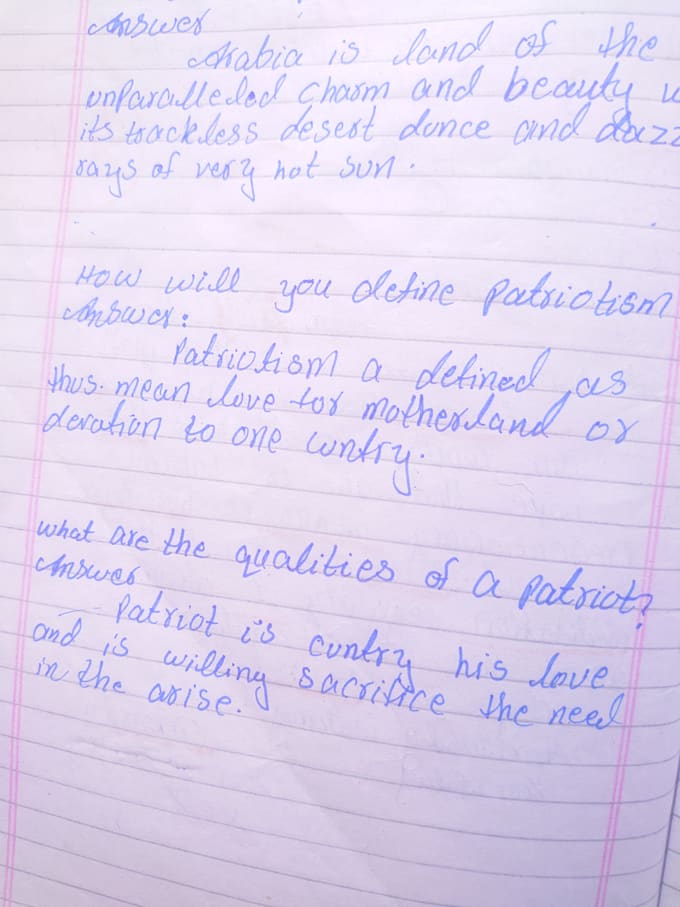 Answer
Arabia is land of the
unparalleled charm and beauty
its trackless desert dunce and dazz
rays of very hot sun.
How will you define Patriotism
Answer:
Patriotism a defined as
thus. mean love for motherland or
devation to one cuntry.
what are the qualities of a patriot?
Answer
Patriot is cuntry his love
and is willing sacrifice the need
in the arise.